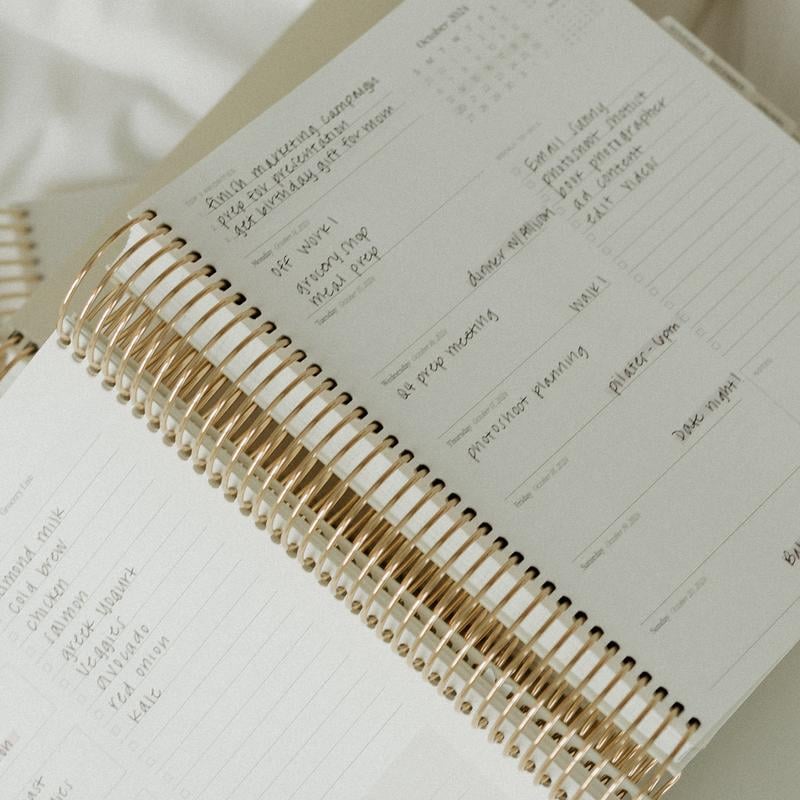 October 2024
S M T W T F S
TOP 3 PRIORITIES
finish marketing campaign
prep for presentation
get birthday gift for mom
Monday October 14, 2024
OFF WORK!
grocery shop
meal prep
Tuesday October 15, 2024
dinner w/ Billian
Wednesday October 16, 2024
Q4 prep meeting
WALK!
Thursday October 17, 2024
photoshoot planning
pilates-6pm
Friday October 18, 2024
Date night!
Saturday October 19, 2024
Sunday October 20, 2024
Email Sunny
photoshoot shotlist
book photographer
ad content
edit video
NOTES
Grocery List
almond milk
cold brew
chicken
salmon
greek yogurt
Veggies
avocado
red onion
kale